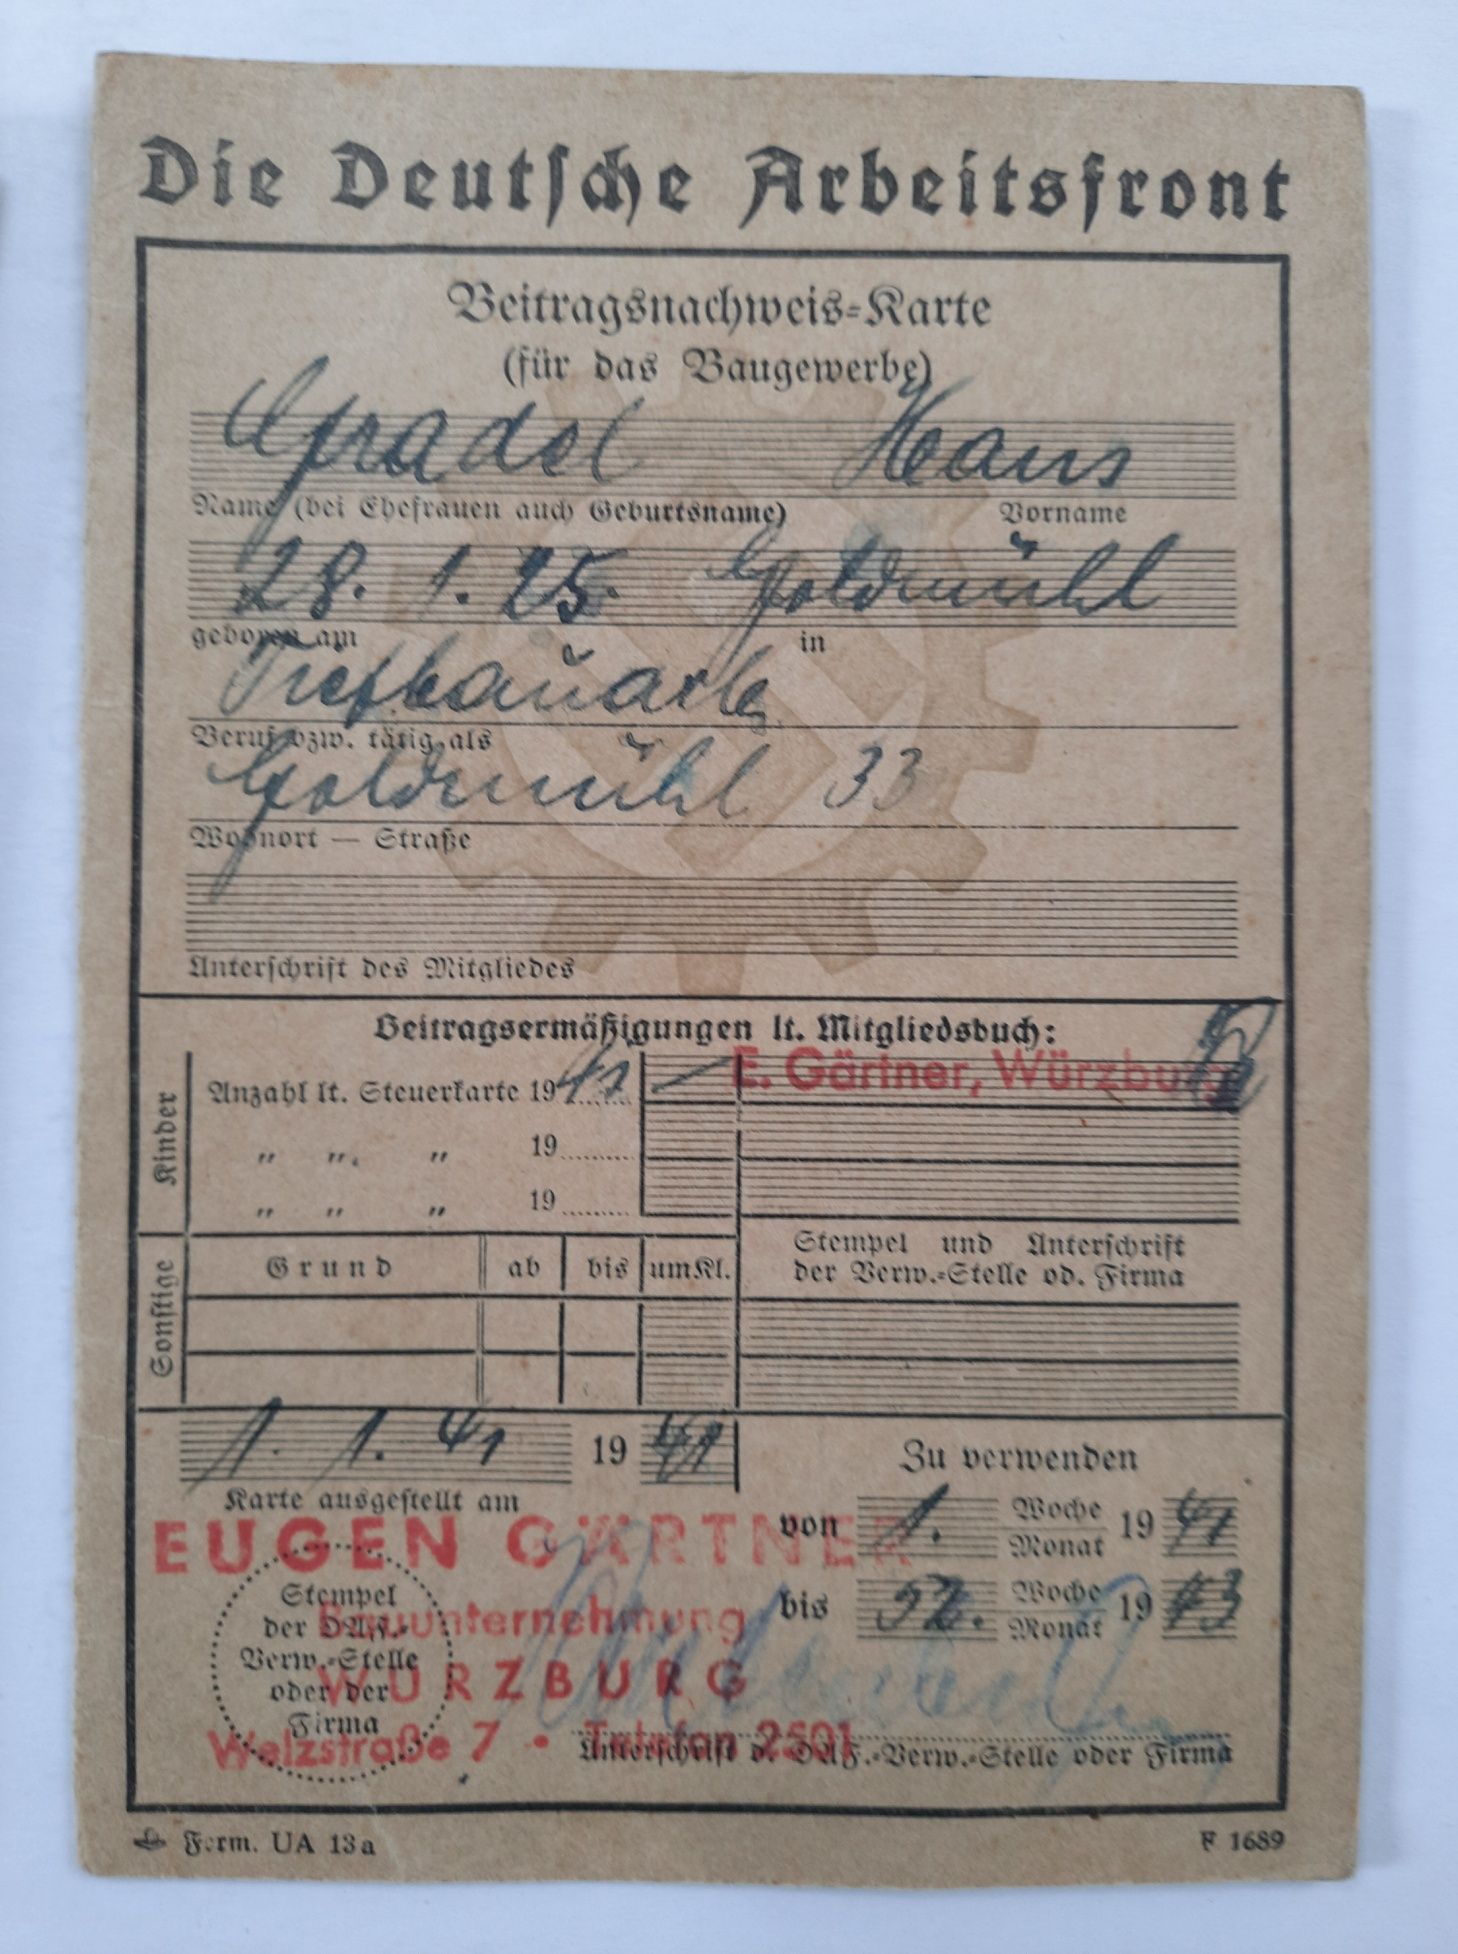 Die Deutsche Arbeitsfront
Beitragsnachweis=Karte
(für das Baugewerbe)
Gradel Hans
Name (bei Ehefrauen auch Geburtsname) Vorname
28. 1. 25. Goldmühl
geboren am in
Tiefbauarb.
Beruf bzw. tätig als
Goldmühl 33
Wohnort — Straße
Unterschrift des Mitgliedes
Beitragsermäßigungen lt. Mitgliedsbuch:
E. Gärtner, Würzburg
Kinder
Anzahl lt. Steuerkarte 1941 —
" " " 19
" " " 19
Stempel und Unterschrift
der Verw.=Stelle od. Firma
Sonstige
Grund ab bis um Kl.
1. 1. 41 1941
Karte ausgestellt am
Zu verwenden
von 1. Woche Monat 1941
bis 52. Woche Monat 1943
EUGEN GÄRTNER
Bauunternehmung
WÜRZBURG
Welzstraße 7 • Telefon 2501
Stempel
der DAF.=
Verw.=Stelle
oder der
Firma
Unterschrift d. DAF.=Verw.=Stelle oder Firma
Form. UA 13a
F 1689